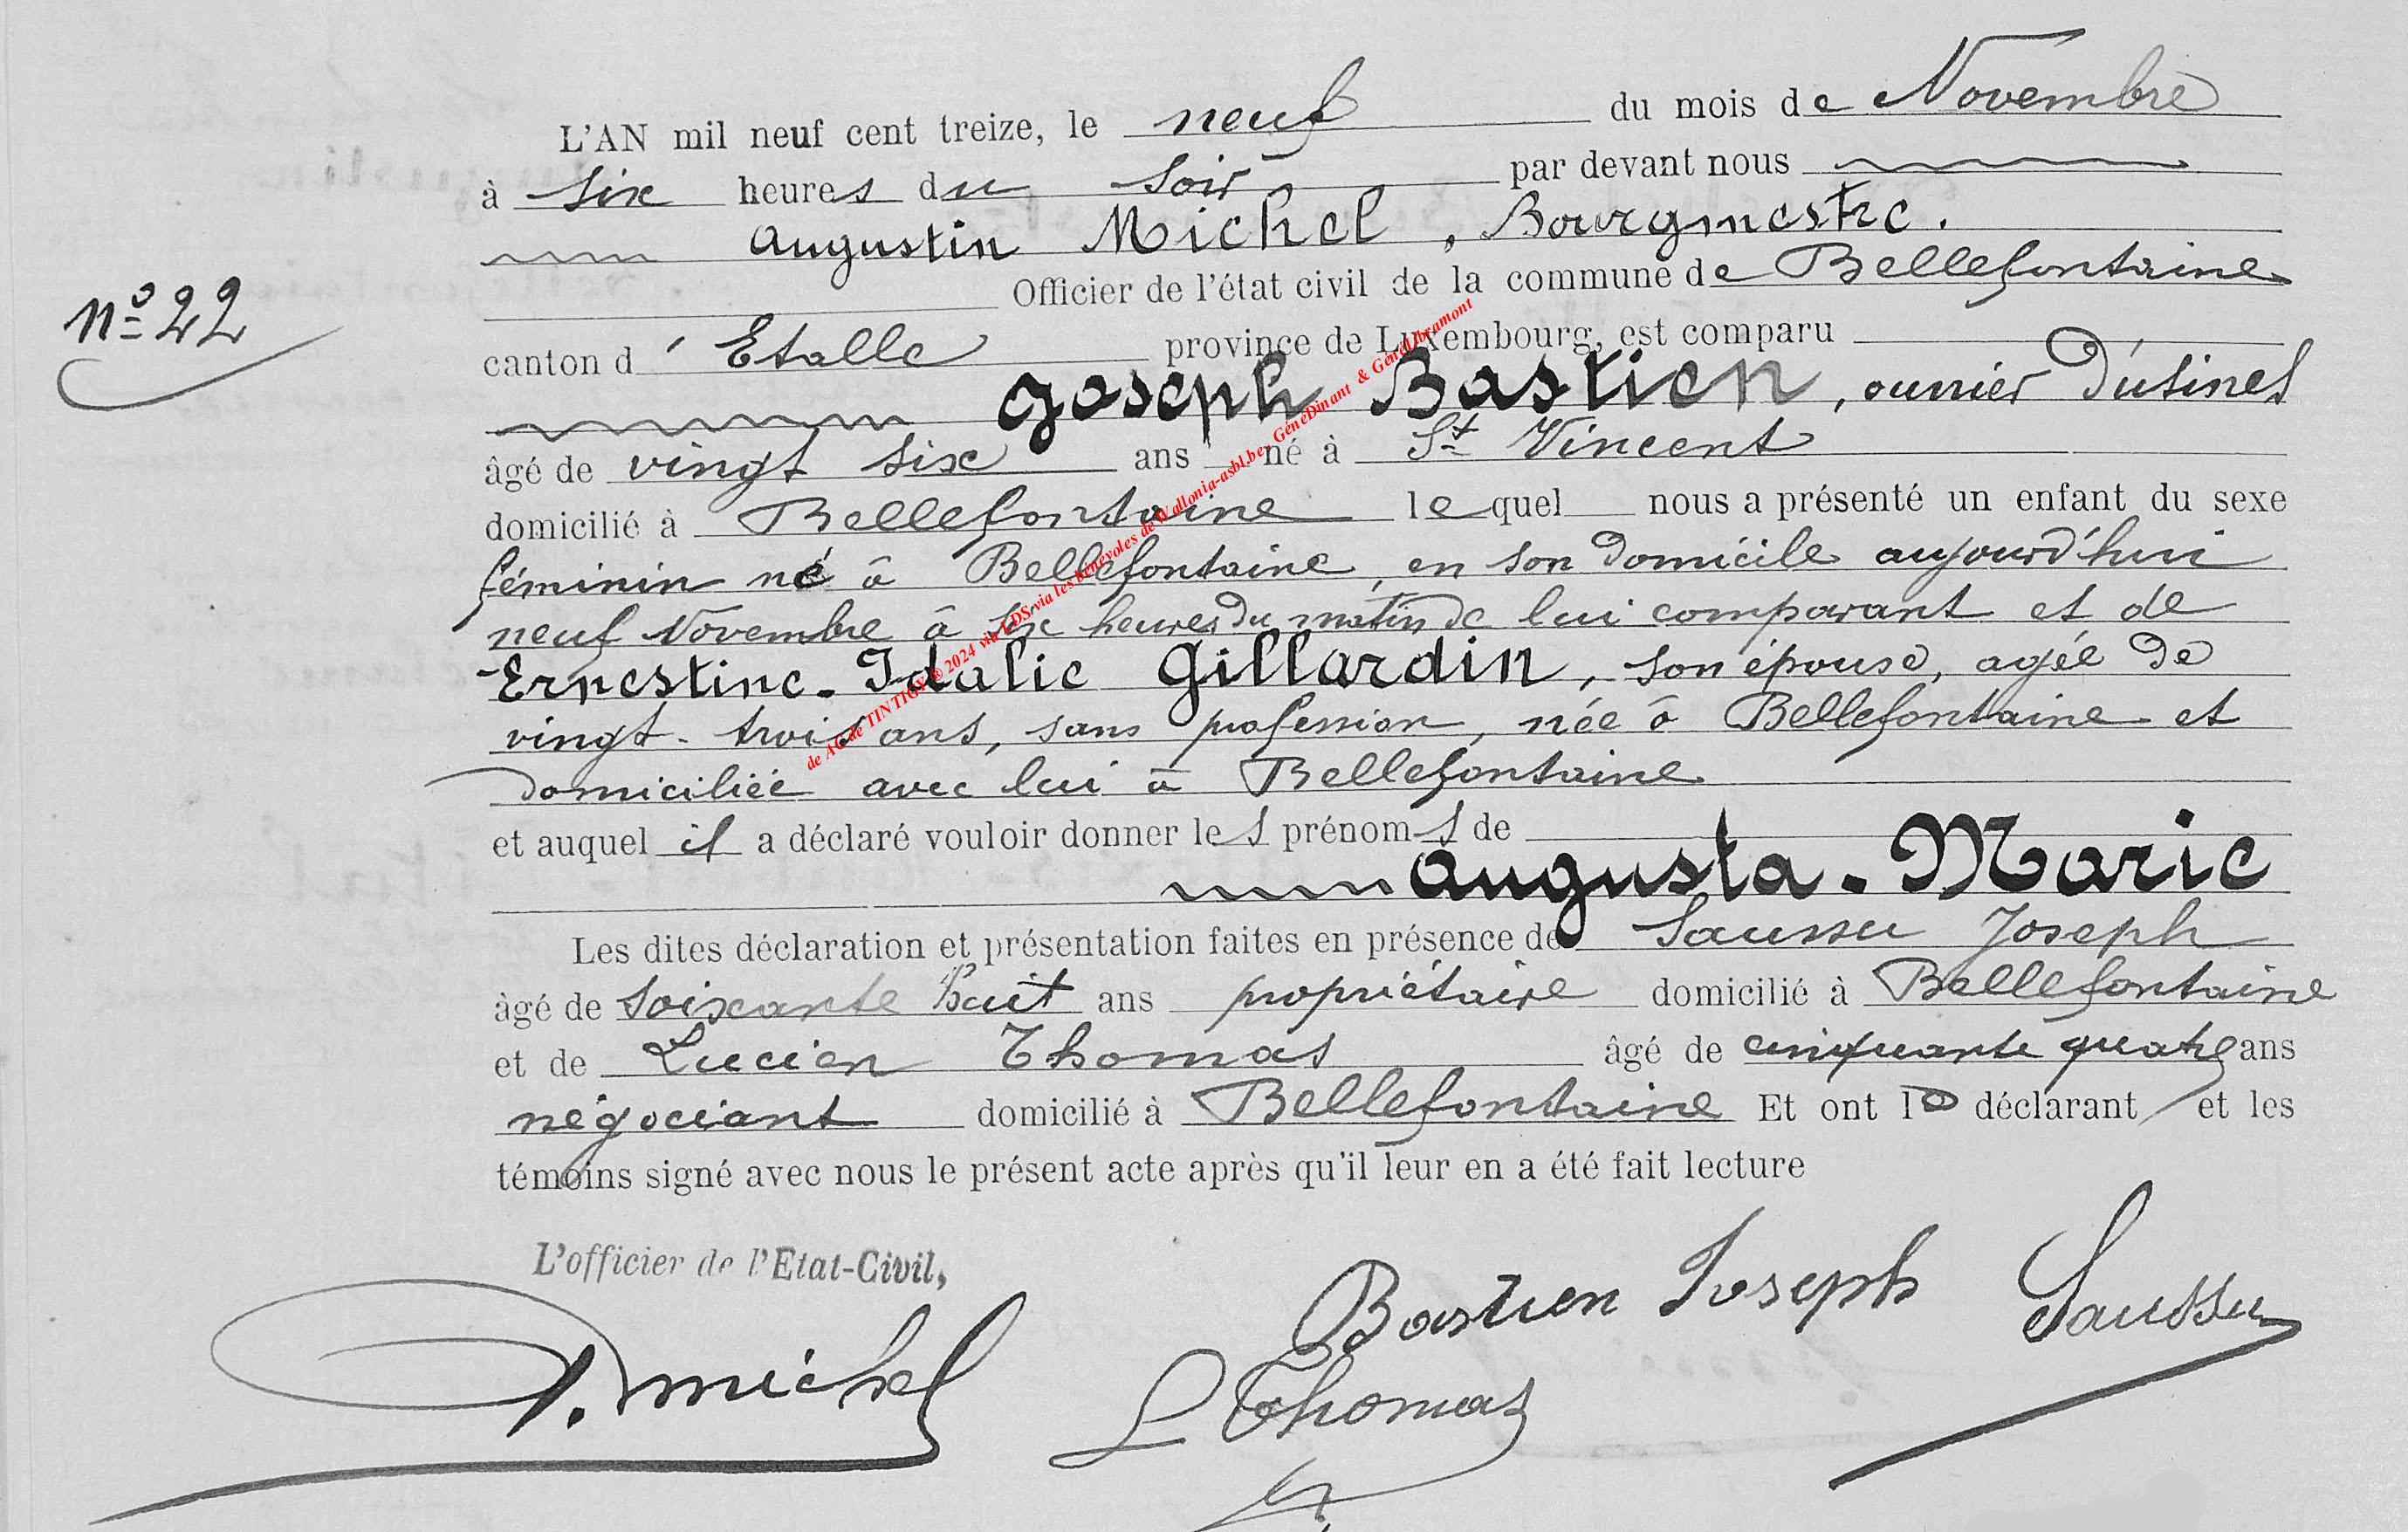 L'AN mil neuf cent treize, le neuf du mois de Novembre
à six heures du soir par devant nous
Augustin Michel, Bourgmestre.
Officier de l'état civil de la commune de Bellefontaine
nº 22
canton d'Etalle province de Luxembourg, est comparu
Joseph Bastien, ouvrier d'usines
âgé de vingt six ans né à St Vincent
domicilié à Bellefontaine lequel nous a présenté un enfant du sexe
féminin né à Bellefontaine, en son domicile aujourd'hui
neuf Novembre à six heures du matin de lui comparant et de
Ernestine-Idalie Gillardin, son épouse, agée de
vingt-trois ans, sans profession, née à Bellefontaine et
domiciliée avec lui à Bellefontaine
et auquel il a déclaré vouloir donner les prénoms de
Augusta-Marie
Les dites déclaration et présentation faites en présence de Saussu Joseph
âgé de soixante huit ans propriétaire domicilié à Bellefontaine
et de Lucien Thomas âgé de cinquante quatre ans
négociant domicilié à Bellefontaine Et ont le déclarant et les
témoins signé avec nous le présent acte après qu'il leur en a été fait lecture
L'officier de l'Etat-Civil,
A. Michel
Bastien Joseph
Saussu
L Thomas
de AC de TINTIGY © 2024 via LDS via les bénévoles de Wallonia-asbl.be, GénéDinant & GénéLibramont